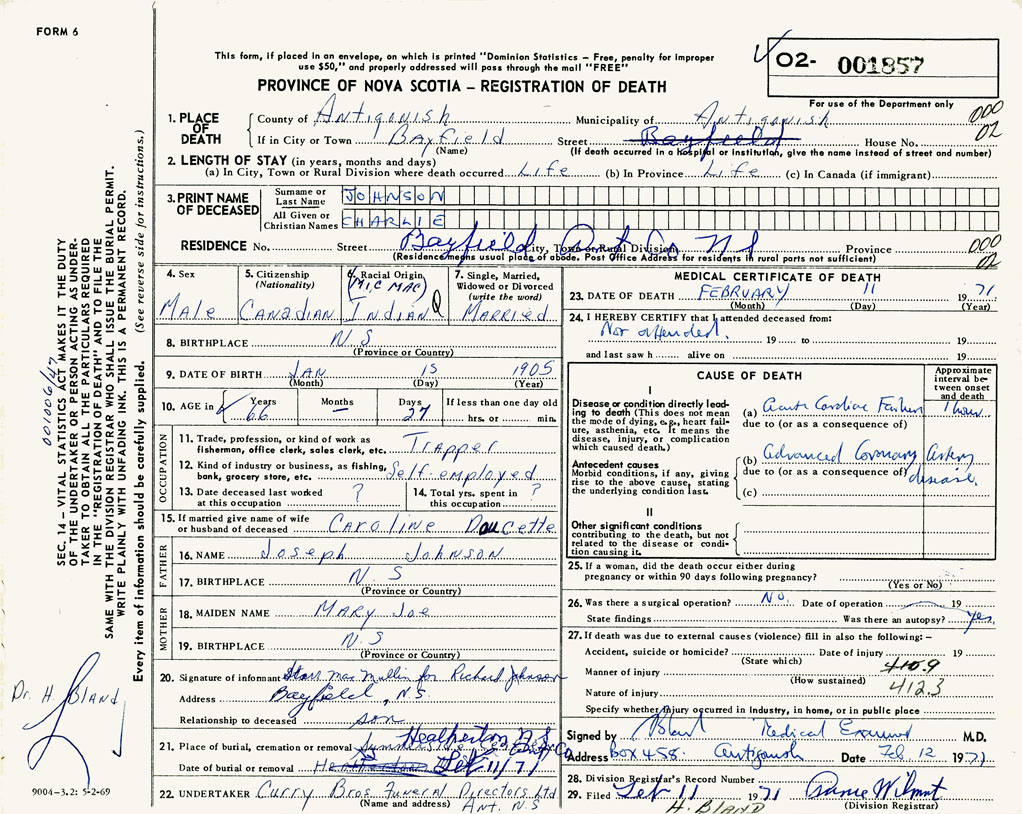 FORM 6
This form, if placed in an envelope, on which is printed "Dominion Statistics – Free, penalty for improper
use $50," and properly addressed will pass through the mail "FREE"
02- 001857
For use of the Department only
PROVINCE OF NOVA SCOTIA – REGISTRATION OF DEATH
1. PLACE OF DEATH
County of Antigonish Municipality of Antigonish 000
If in City or Town Bayfield Street Bayfield House No. 02
(Name) (If death occurred in a hospital or institution, give the name instead of street and number)
2. LENGTH OF STAY (in years, months and days)
(a) In City, Town or Rural Division where death occurred Life (b) In Province Life (c) In Canada (if immigrant)
3. PRINT NAME OF DECEASED
Surname or Last Name JOHNSON
All Given or Christian Names CHARLIE
RESIDENCE No. Street Bayfield City, Town or Rural Division Ant Co N S Province 000
(Residence means usual place of abode. Post Office Address for residents in rural parts not sufficient) 02
4. Sex Male
5. Citizenship (Nationality) Canadian
6. Racial Origin (MIC MAC) Indian
7. Single, Married, Widowed or Divorced (write the word) Married
8. BIRTHPLACE N.S
(Province or Country)
9. DATE OF BIRTH JAN 15 1905
(Month) (Day) (Year)
10. AGE in Years 66 Months — Days 27 If less than one day old
hrs. or min.
OCCUPATION
11. Trade, profession, or kind of work as
fisherman, office clerk, sales clerk, etc. Trapper
12. Kind of industry or business, as fishing,
bank, grocery store, etc. Self-employed
13. Date deceased last worked
at this occupation ?
14. Total yrs. spent in
this occupation ?
15. If married give name of wife
or husband of deceased Caroline Doucette
FATHER
16. NAME Joseph Johnson
17. BIRTHPLACE N.S
(Province or Country)
MOTHER
18. MAIDEN NAME Mary Joe
19. BIRTHPLACE N.S
(Province or Country)
20. Signature of informant Mac Mullin for Richard Johnson
Address Bayfield, N.S
Relationship to deceased son
21. Place of burial, cremation or removal Heatherton N S
Date of burial or removal Feb 11/71
22. UNDERTAKER Curry Bros Funeral Directors Ltd
(Name and address) Ant. N.S
MEDICAL CERTIFICATE OF DEATH
23. DATE OF DEATH FEBRUARY 11 1971
(Month) (Day) (Year)
24. I HEREBY CERTIFY that I attended deceased from:
Not attended 19 to 19
and last saw h alive on 19
CAUSE OF DEATH
Approximate interval between onset and death
I
Disease or condition directly leading to death (This does not mean the mode of dying, e.g., heart failure, asthenia, etc. It means the disease, injury, or complication which caused death.)
(a) Acute Cardiac Failure 1 hour
due to (or as a consequence of)
Antecedent causes
Morbid conditions, if any, giving rise to the above cause, stating the underlying condition last.
(b) Advanced Coronary Artery
due to (or as a consequence of) disease
(c)
II
Other significant conditions
contributing to the death, but not related to the disease or condition causing it.
25. If a woman, did the death occur either during
pregnancy or within 90 days following pregnancy?
(Yes or No)
26. Was there a surgical operation? No. Date of operation 19
State findings Was there an autopsy? Yes
27. If death was due to external causes (violence) fill in also the following: –
Accident, suicide or homicide? Date of injury 19
(State which)
Manner of injury 410.9
(How sustained)
Nature of injury 412.3
Specify whether injury occurred in Industry, in home, or in public place
Signed by Bland Medical Examiner M.D.
Address Box 458 Antigonish Date Feb 12 1971
28. Division Registrar's Record Number
29. Filed Feb 11 1971
(Division Registrar)
H. BLAND
SEC. 14 – VITAL STATISTICS ACT MAKES IT THE DUTY
OF THE UNDERTAKER OR PERSON ACTING AS UNDER-
TAKER TO OBTAIN ALL THE PARTICULARS REQUIRED
IN THE "REGISTRATION OF DEATH" AND TO FILE THE
SAME WITH THE DIVISION REGISTRAR WHO SHALL ISSUE THE BURIAL PERMIT.
WRITE PLAINLY WITH UNFADING INK. THIS IS A PERMANENT RECORD.
Every item of information should be carefully supplied. (See reverse side for instructions.)
001006/47
Dr. H BLAND
9004–3.2: 5-2-69